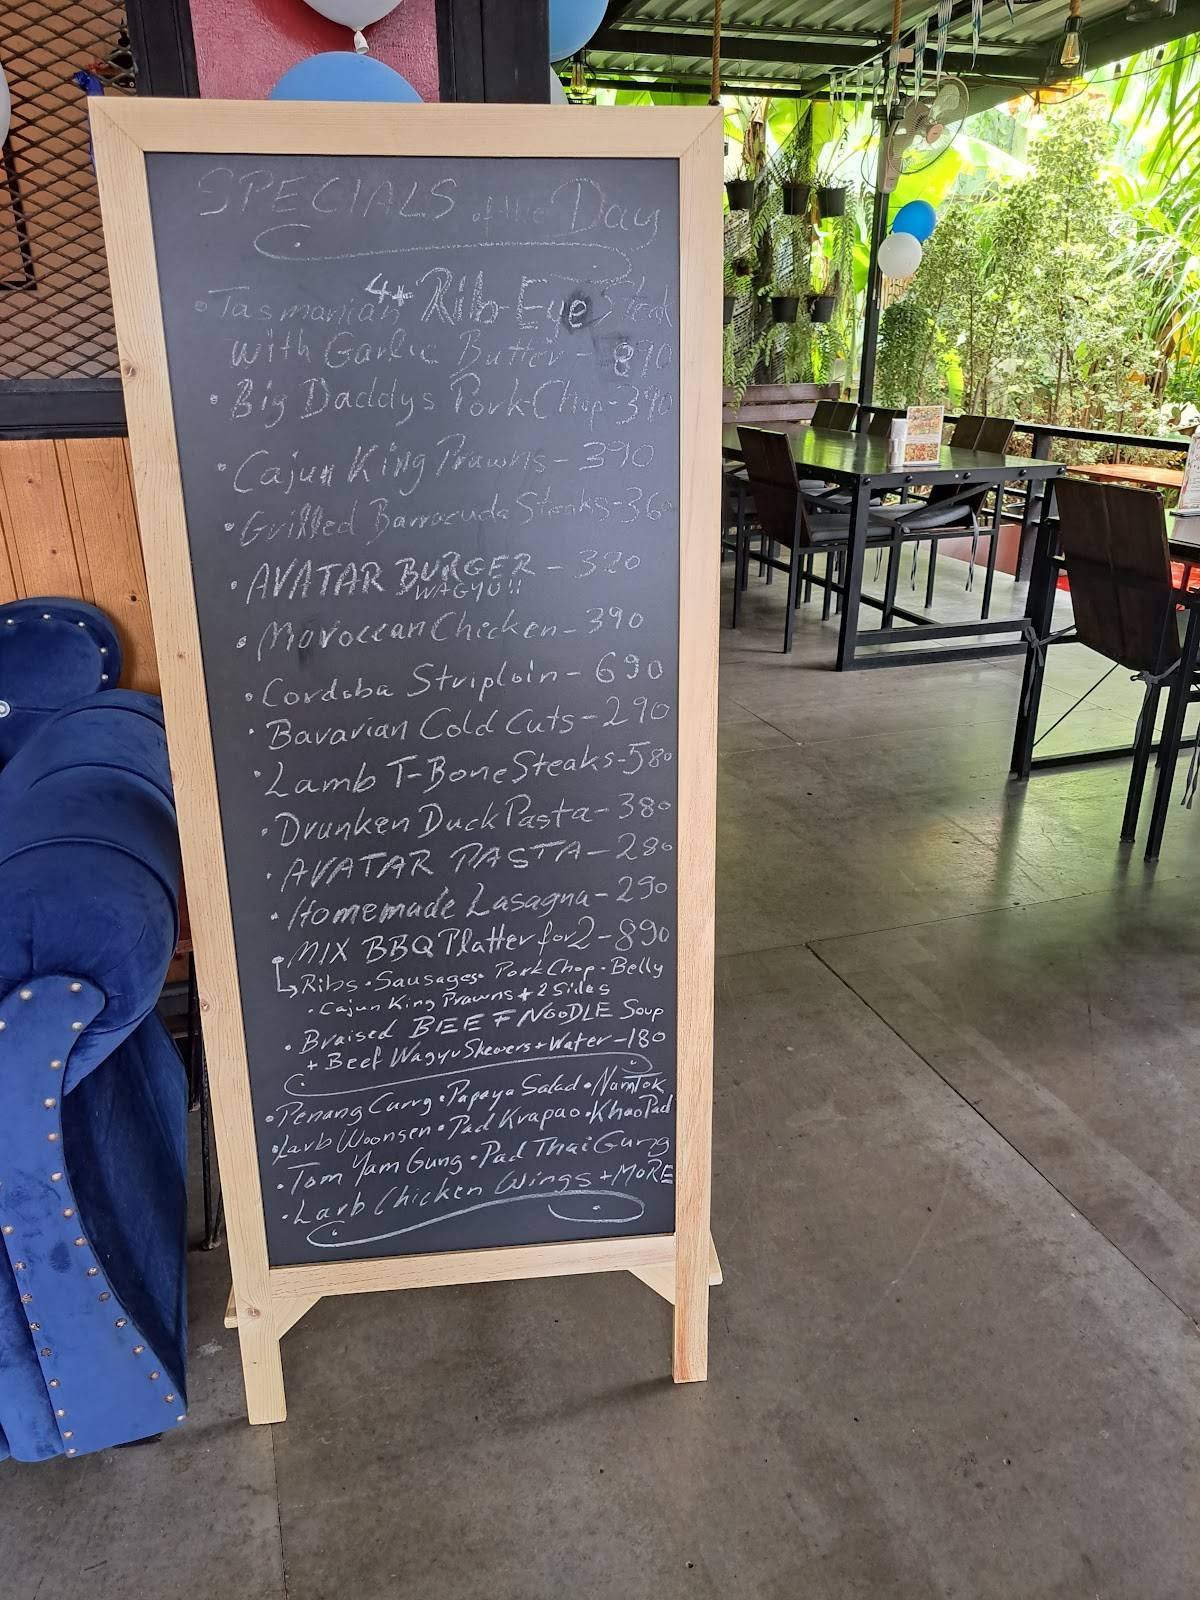 SPECIALS of the Day
• Tasmanian 4+ Rib-Eye Steak
with Garlic Butter - 890
• Big Daddys Pork-Chop - 390
• Cajun King Prawns - 390
• Grilled Barracuda Steaks - 360
• AVATAR BURGER - 320
WAGYU!!
• Moroccan Chicken - 390
• Cordoba Striploin - 690
• Bavarian Cold Cuts - 290
• Lamb T-Bone Steaks - 580
• Drunken Duck Pasta - 380
• AVATAR PASTA - 280
• Homemade Lasagna - 290
• MIX BBQ Platter for 2 - 890
Ribs • Sausages • Pork Chop • Belly
• Cajun King Prawns + 2 Sides
• Braised BEEF NOODLE Soup
+ Beef Wagyu Skewers + Water - 180
• Penang Curry • Papaya Salad • NamTok
• Larb Woonsen • Pad Krapao • KhaoPad
• Tom Yam Gung • Pad Thai Gung
• Larb Chicken Wings + MORE